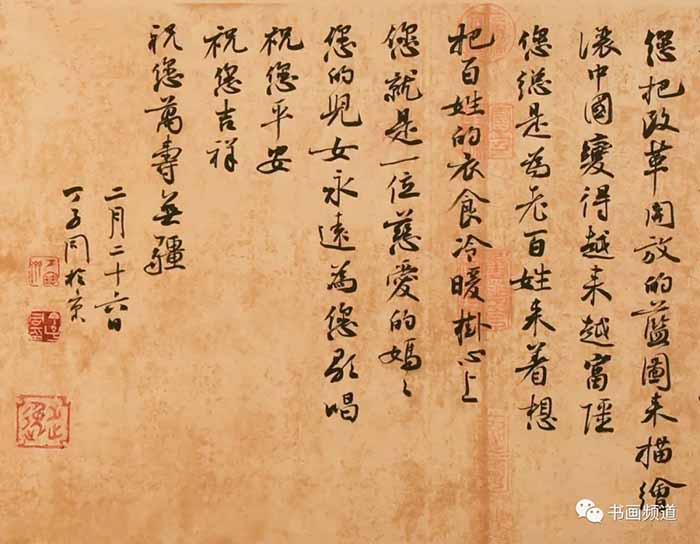 您把改革開放的藍圖来描繪
讓中國變得越来越富強
您總是為老百姓来着想
把百姓的衣食冷暖掛心上
您就是一位慈愛的媽々
您的兒女永遠為您歌唱
祝您平安
祝您吉祥
祝您萬壽無疆
二月二十六日
丁子同於京
书画频道